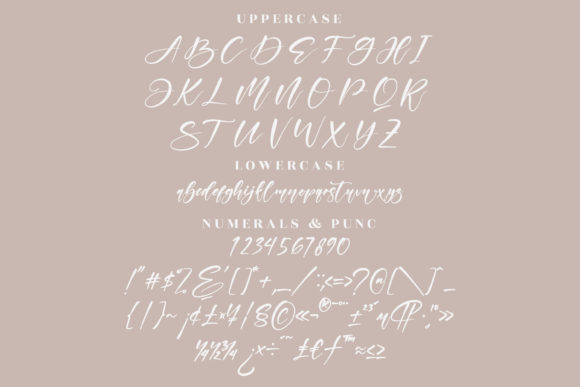 UPPERCASE
ABCDEFGHI
JKLMNOPQR
STUVWXYZ
LOWERCASE
abcdefghijklmnopqrstuvwxyz
NUMERALS & PUNC
1234567890
!"#$%&'()*+,-./:;<=>?@[\]_
{|}~¡¢£¤¥¦§©«¬®¯°±²³´µ¶·¸¹º»
¼½¾¿×÷˜₤€ƒ™≈≤≥